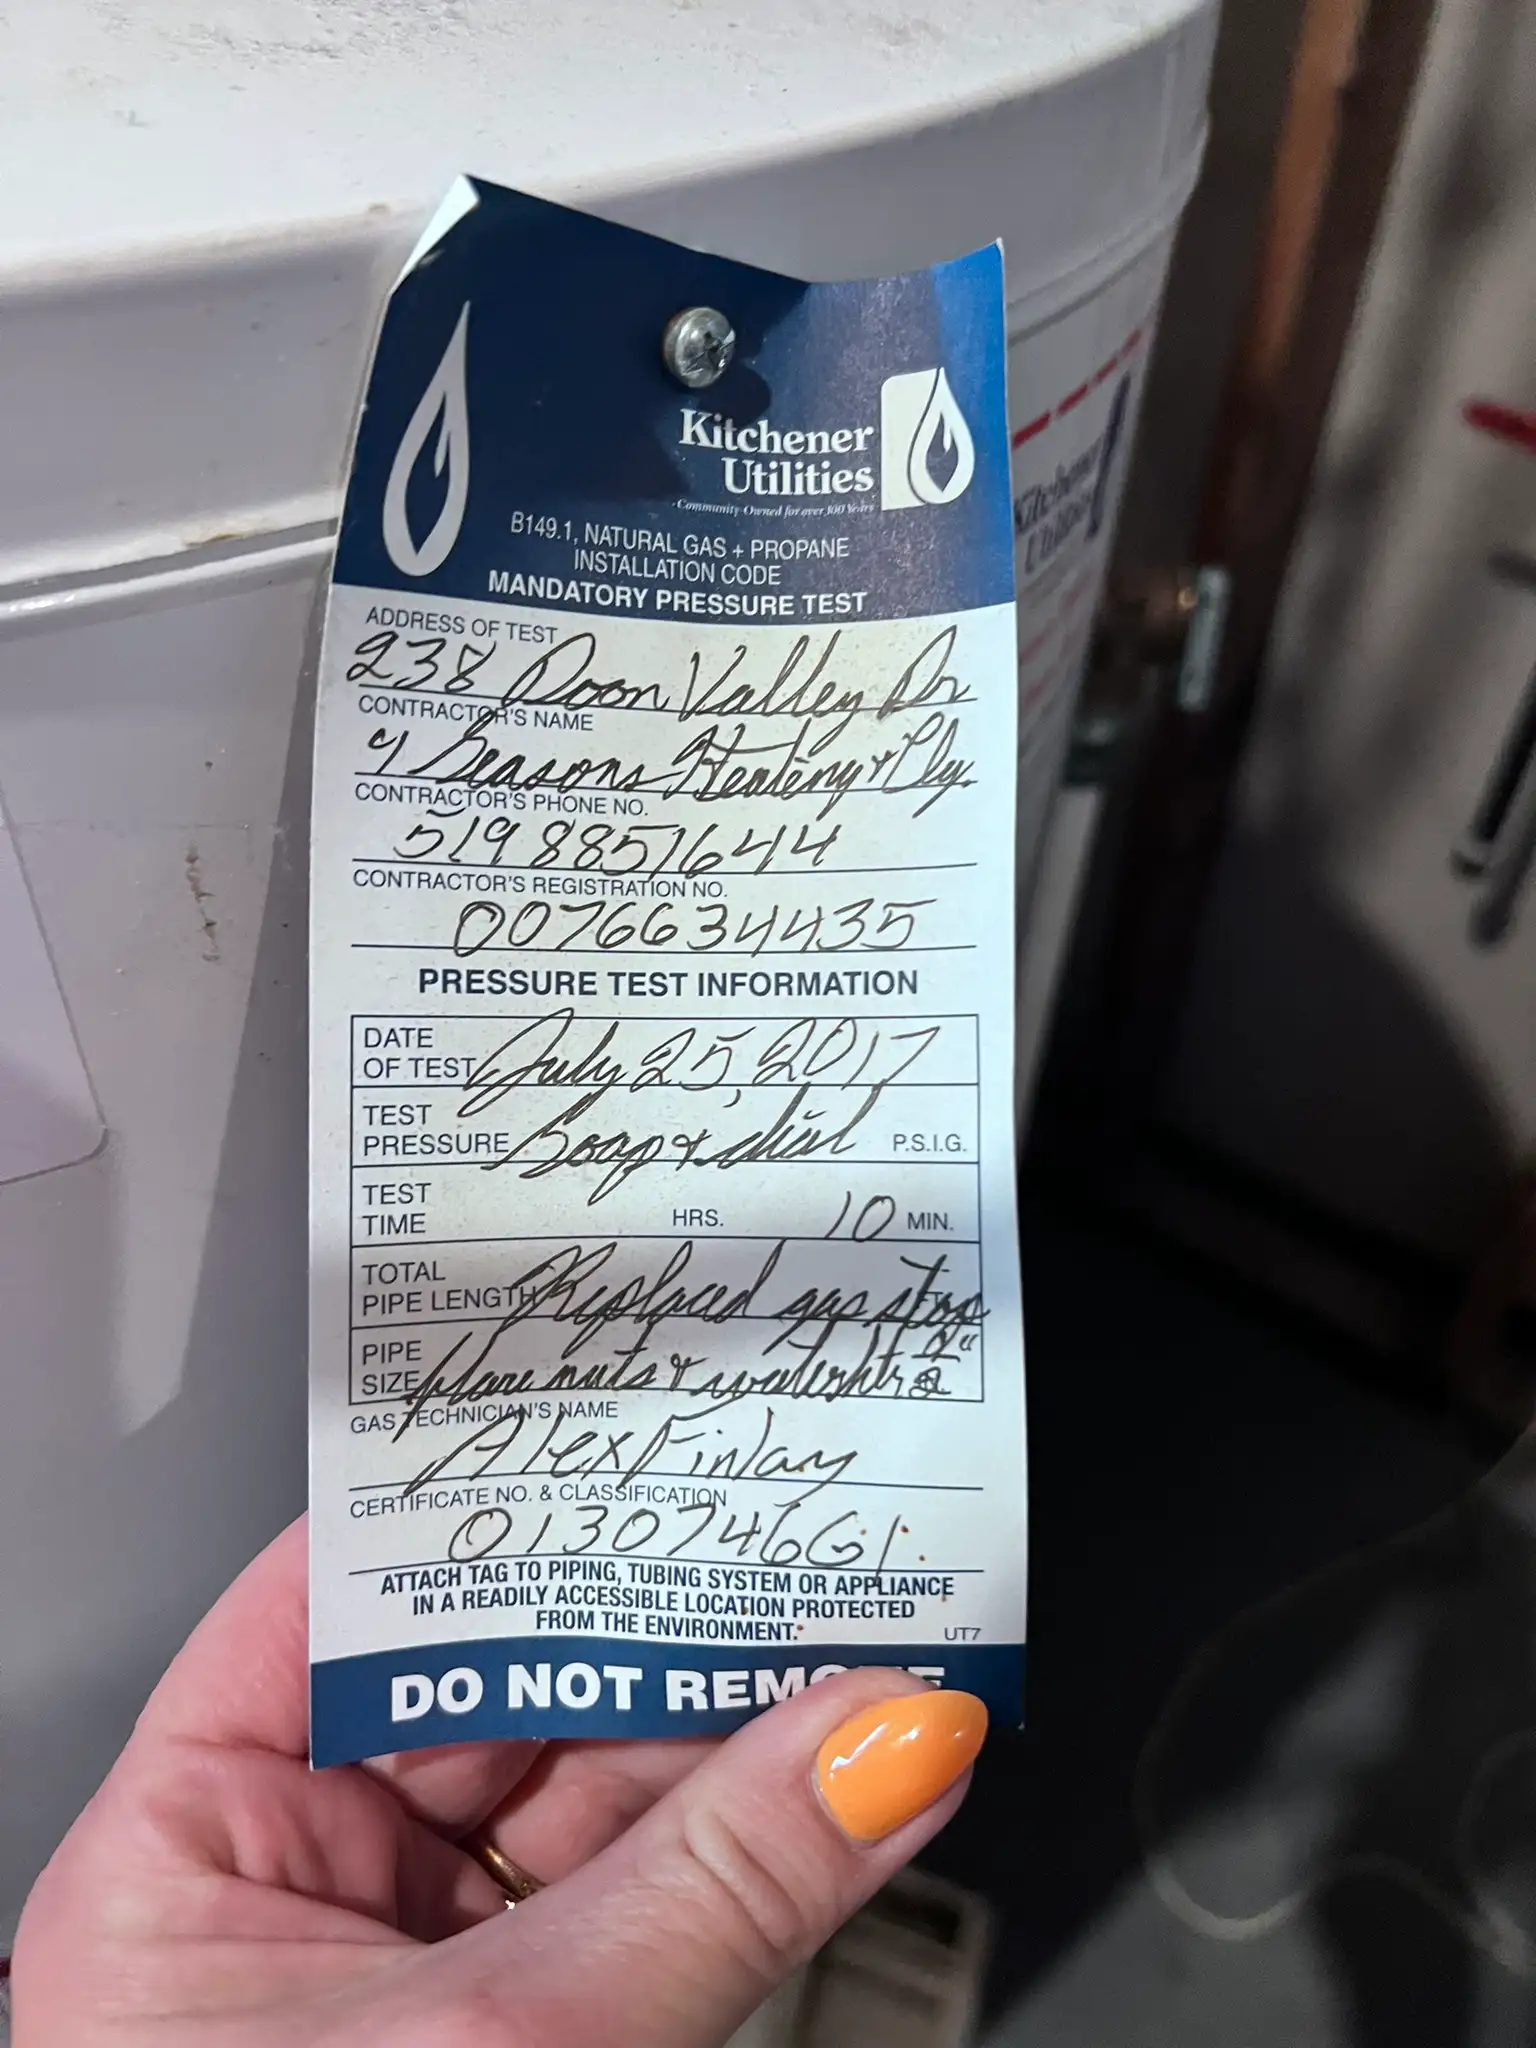 Kitchener
Utilities
Community Owned for over 100 Years
B149.1, NATURAL GAS + PROPANE
INSTALLATION CODE
MANDATORY PRESSURE TEST
ADDRESS OF TEST
238 Doon Valley Dr
CONTRACTOR'S NAME
4 Seasons Heating & Clg.
CONTRACTOR'S PHONE NO.
519 8851644
CONTRACTOR'S REGISTRATION NO.
0076634435
PRESSURE TEST INFORMATION
DATE
OF TEST July 25, 2017
TEST
PRESSURE Soap & dial P.S.I.G.
TEST
TIME HRS. 10 MIN.
TOTAL
PIPE LENGTH Replaced gas stop FT.
PIPE
SIZE flare nuts & waterhtr
GAS TECHNICIAN'S NAME
Alex Finlay
CERTIFICATE NO. & CLASSIFICATION
01307466G1
ATTACH TAG TO PIPING, TUBING SYSTEM OR APPLIANCE
IN A READILY ACCESSIBLE LOCATION PROTECTED
FROM THE ENVIRONMENT.
UT7
DO NOT REMOVE
Kitchener
Utilities